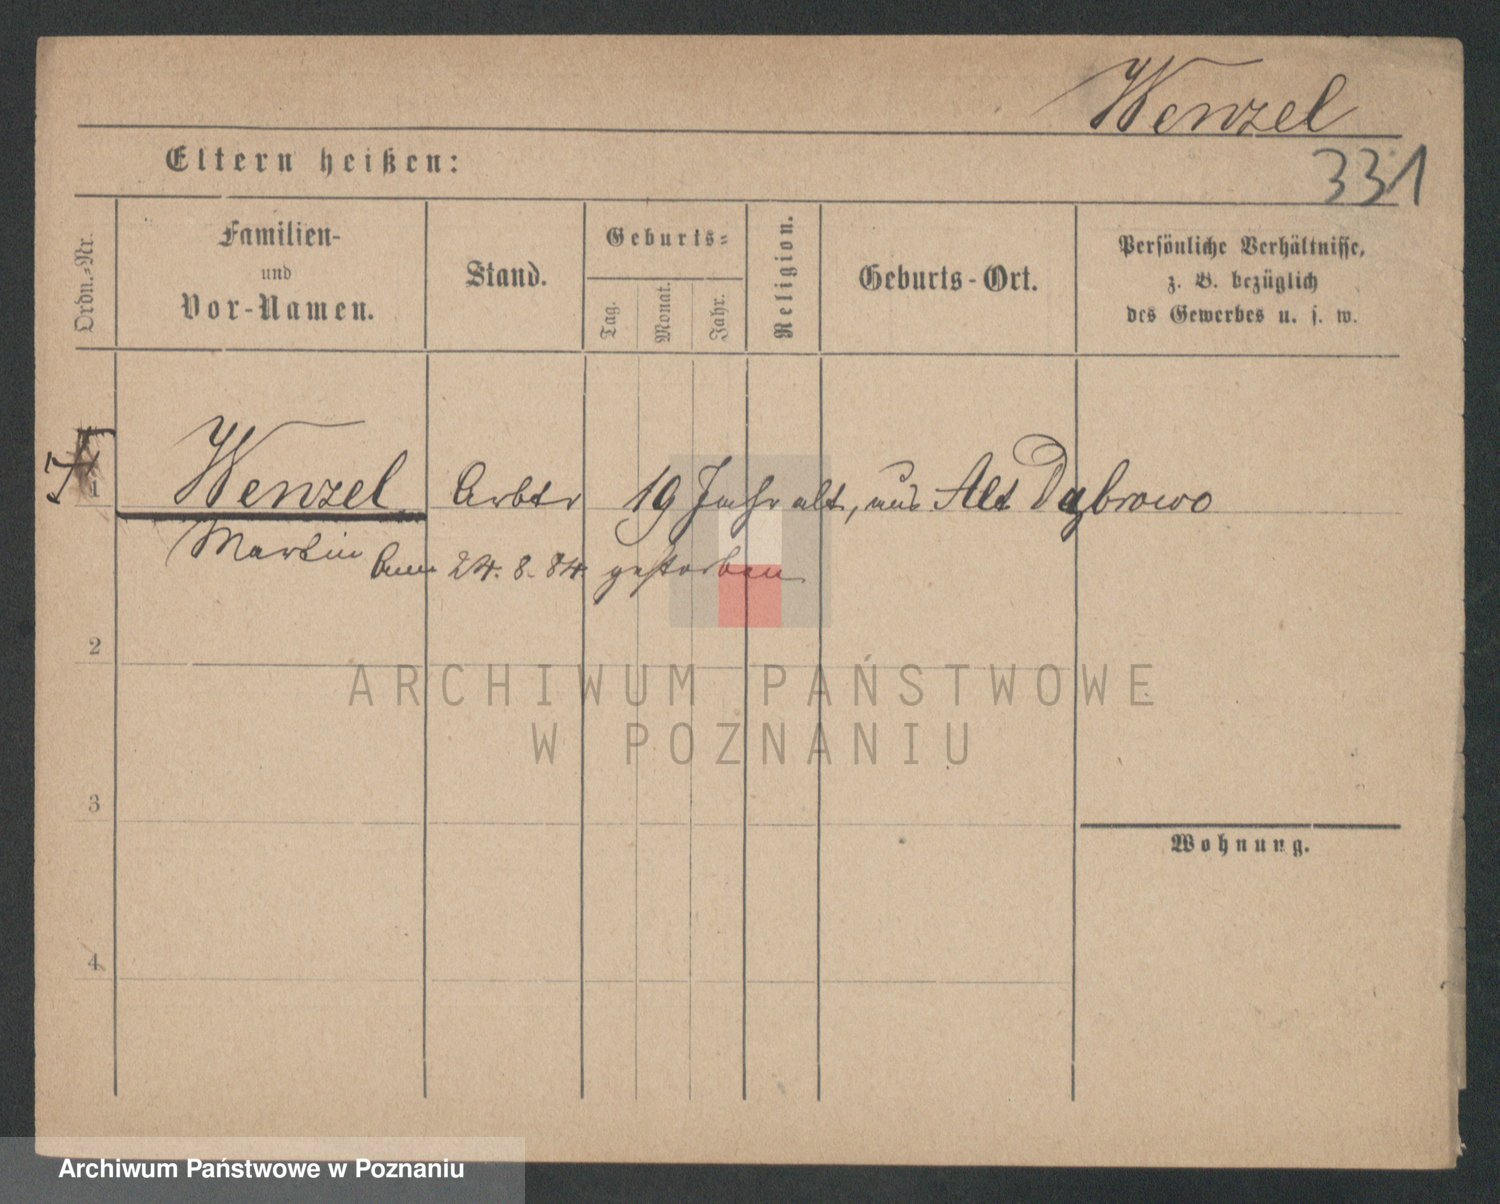 Wenzel
Eltern heißen:
331
Ordn.=Nr.
Familien-
und
Vor-Namen.
Stand.
Geburts=
Tag.
Monat.
Jahr.
Religion.
Geburts-Ort.
Persönliche Verhältnisse,
z. B. bezüglich
des Gewerbes u. s. w.
1 Wenzel Arbtr 19 Jahr alt, aus Alt Dąbrowo
Martin Am 24. 8. 84 gestorben
2
3
4
Wohnung.
ARCHIWUM PAŃSTWOWE
W POZNANIU
Archiwum Państwowe w Poznaniu